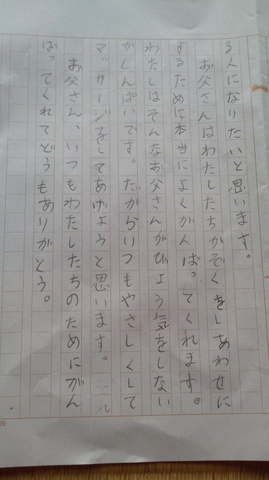 る人になりたいと思います。
お父さんはわたしたちかぞくをしあわせに
するために本当によくがんばってくれます。
わたしはそんなお父さんがびょう気をしない
かしんぱいです。だからいつもやさしくして
マッサージをしてあげようと思います。
お父さん、いつもわたしたちのためにがん
ばってくれてどうもありがとう。